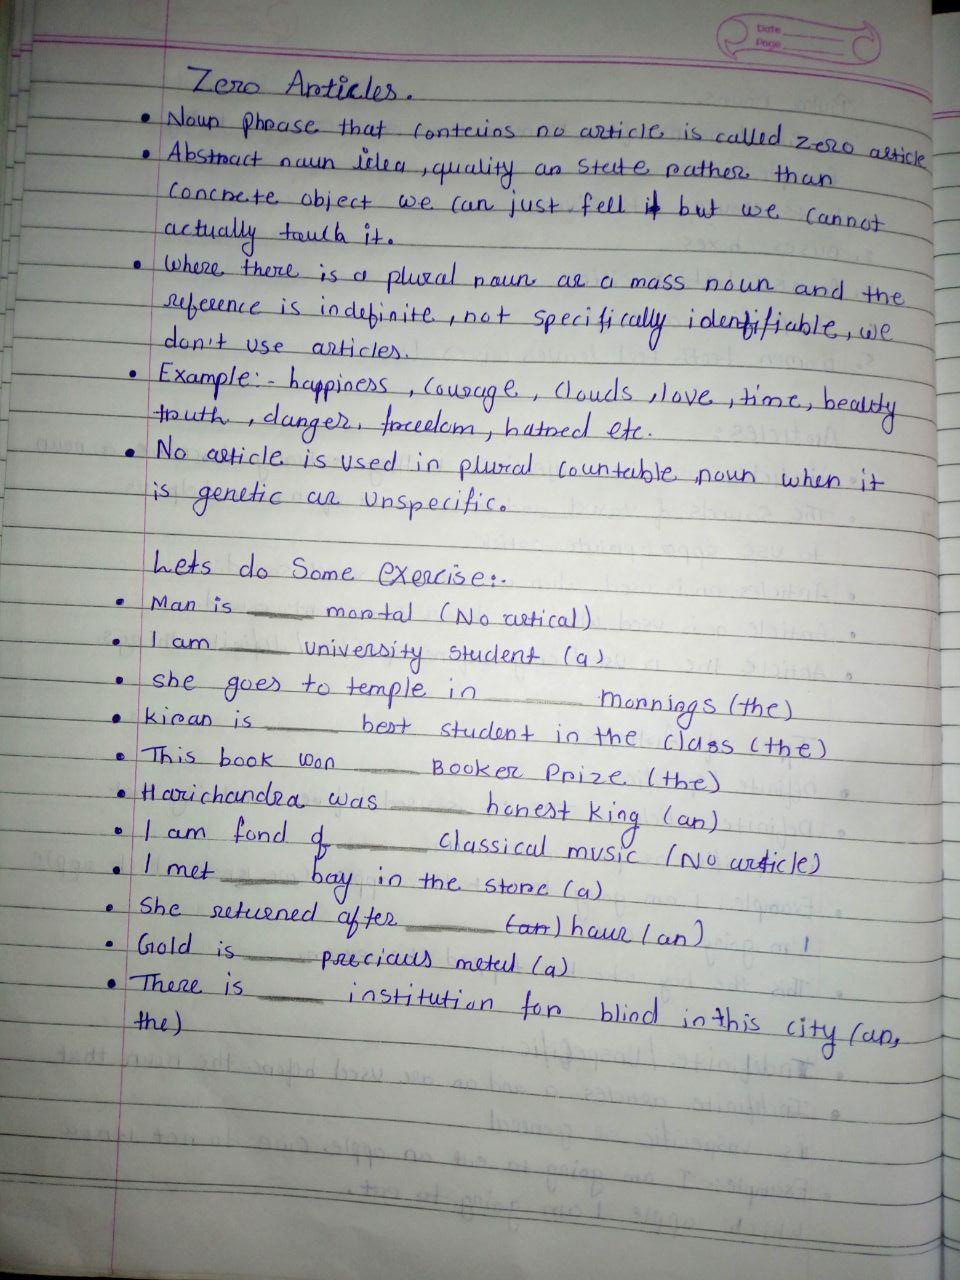 Date
Page
Zero Articles.
• Noun phrase that contains no article is called zero article
• Abstract noun idea, quality or state rather than
concrete object we can just fell it but we cannot
actually touch it.
• Where there is a plural noun or a mass noun and the
reference is indefinite, not specifically identifiable, we
don't use articles.
• Example:- happiness, courage, clouds, love, time, beauty
truth, danger, freedom, hatred etc.
• No article is used in plural countable noun when it
is genetic or unspecific.
Lets do Some exercise:-
• Man is ____ mortal (No artical)
• I am ____ university student (a)
• she goes to temple in ____ mornings (the)
• kiran is ____ best student in the class (the)
• This book won ____ Booker Prize (the)
• Harichandra was ____ honest king (an)
• I am fond of ____ classical music (No article)
• I met ____ boy in the store (a)
• She returned after ____ (an) hour (an)
• Gold is ____ precious metal (a)
• There is ____ institution for blind in this city (an,
the)